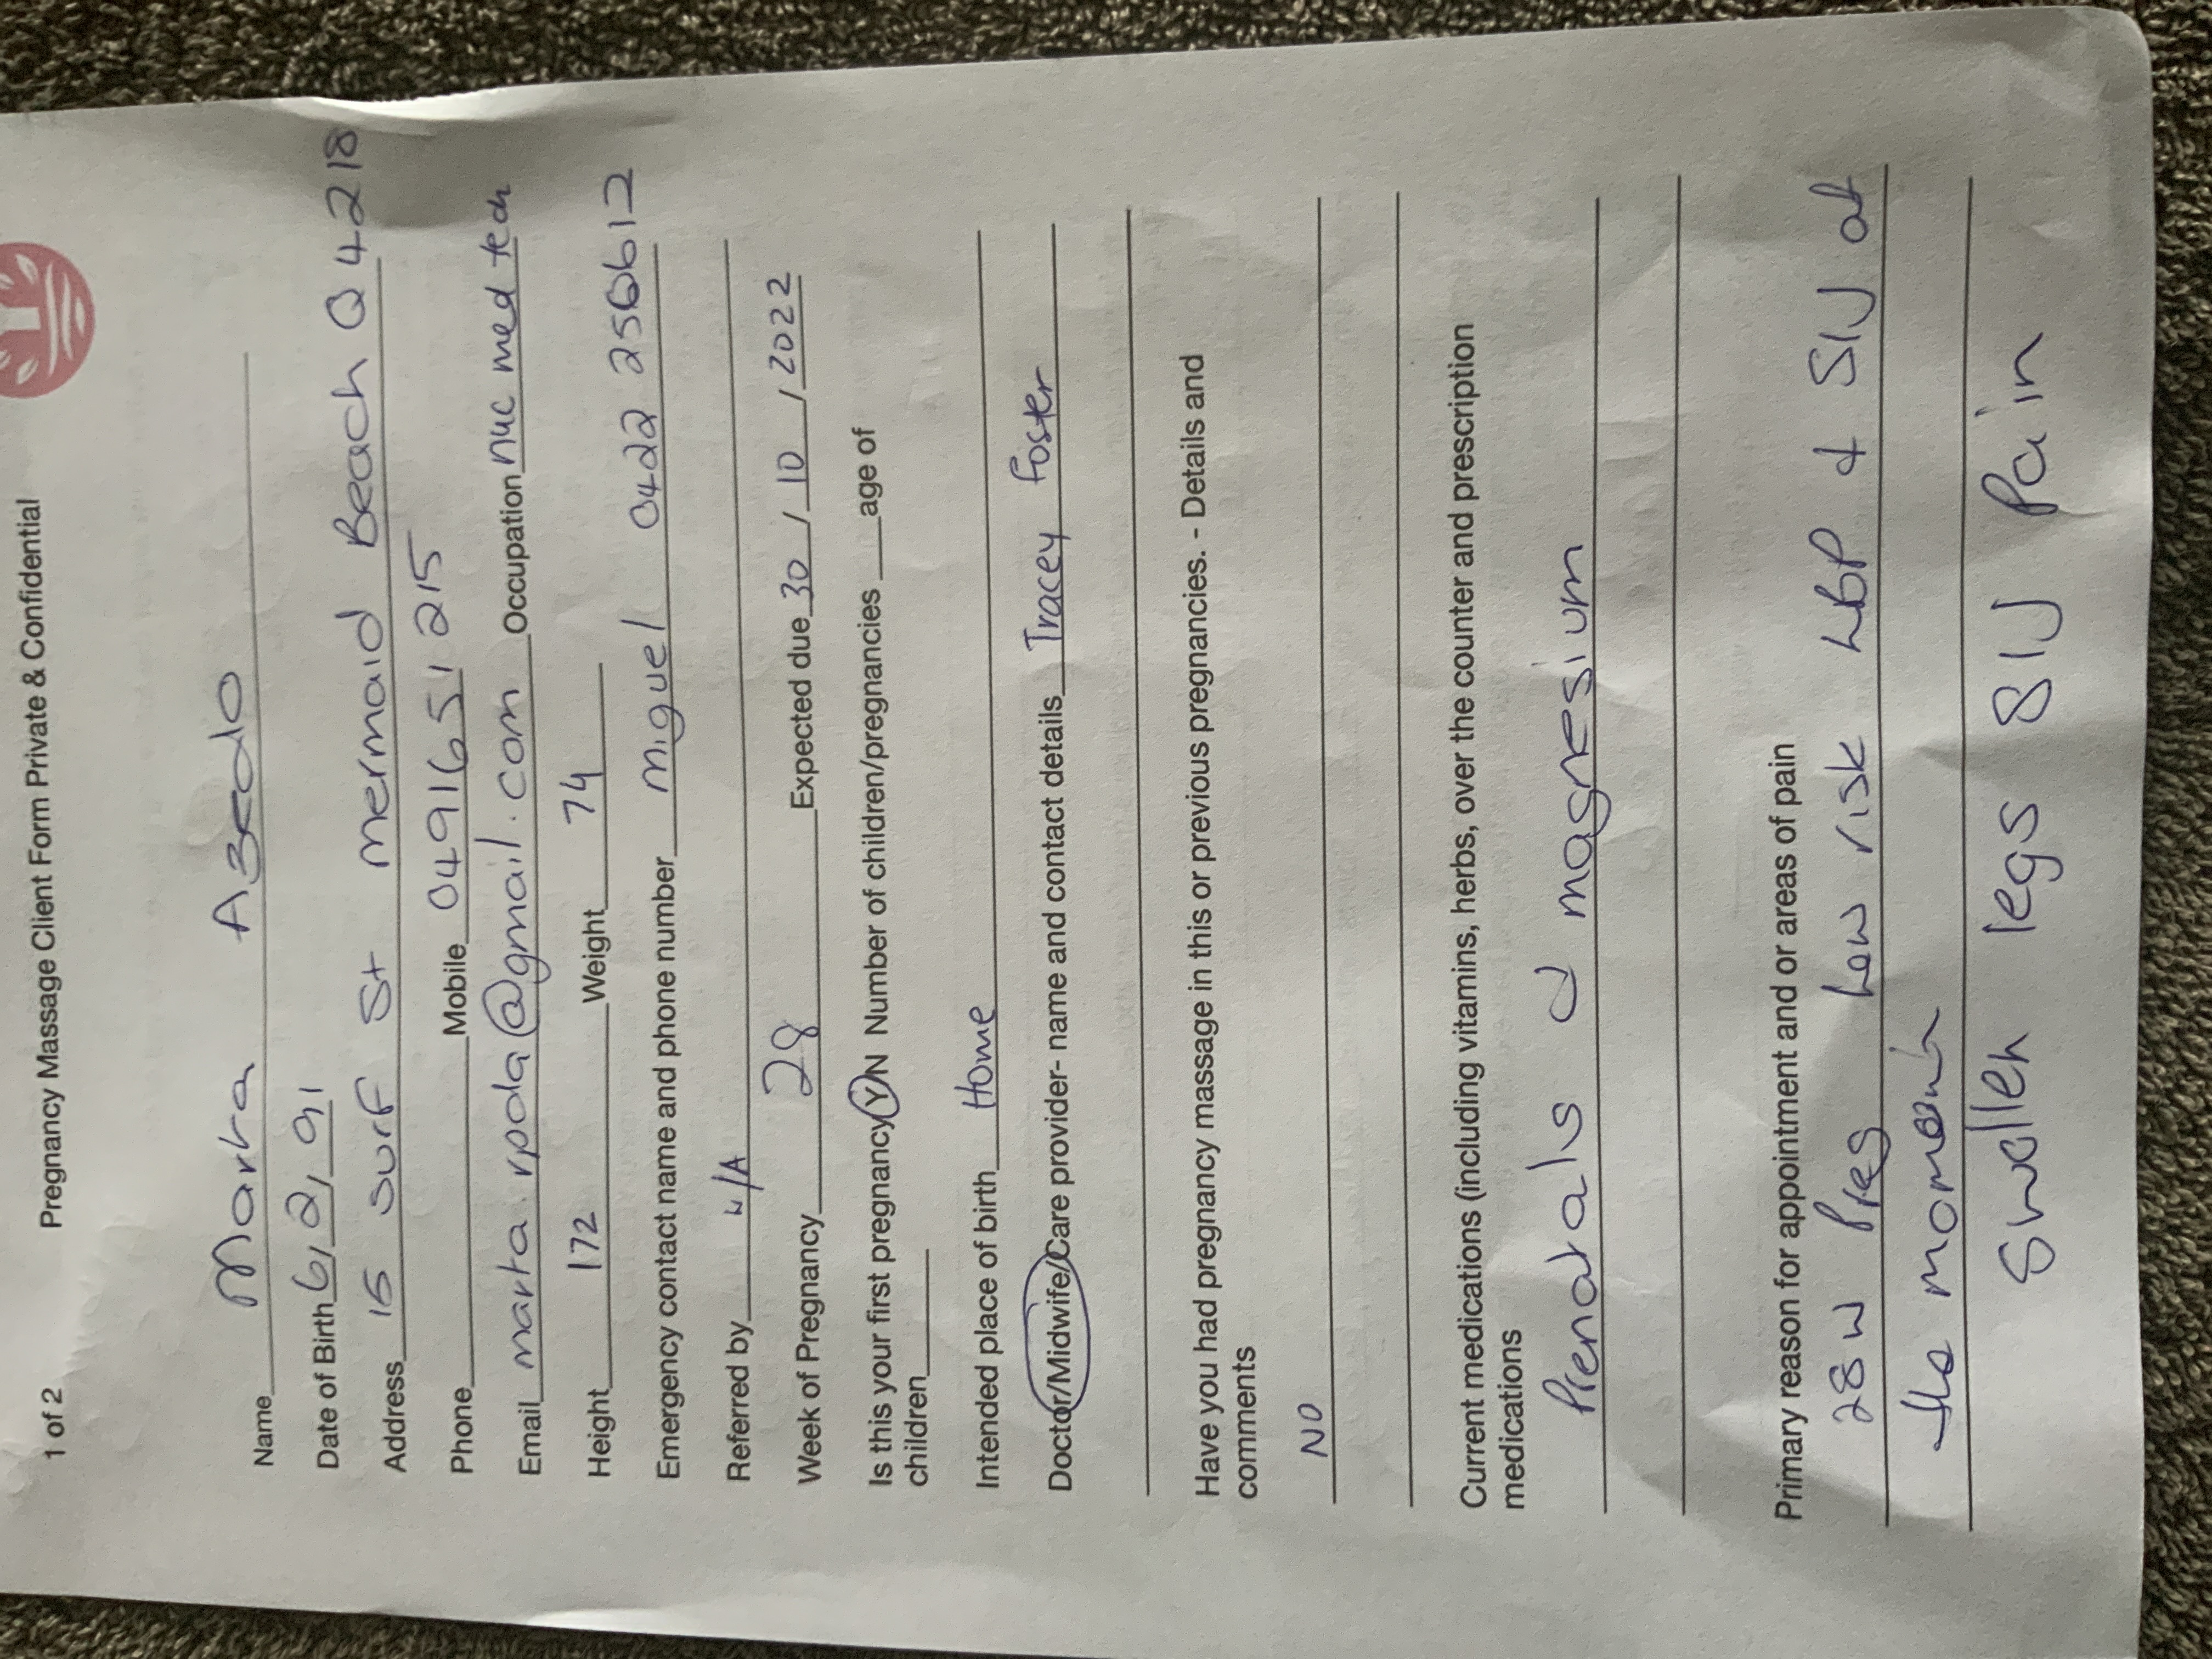 1 of 2 Pregnancy Massage Client Form Private & Confidential
Name Marta
Date of Birth 6/2/91
Address 15 surf St mermaid Beach Q 4218
Phone Mobile 0491651215
Email marta.rpoda@gmail.com Occupation nuc med tech
Height 172 Weight 74
Emergency contact name and phone number miguel 0422 256612
Referred by
Week of Pregnancy 28 Expected due 30 / 10 / 2022
Is this your first pregnancy Y/N Number of children/pregnancies age of
children
Intended place of birth Home
Doctor/Midwife/Care provider- name and contact details Tracey Foster
Have you had pregnancy massage in this or previous pregnancies. - Details and
comments
NO
Current medications (including vitamins, herbs, over the counter and prescription
medications
Prenatals & magnesium
Primary reason for appointment and or areas of pain
28w Preg Low risk LBP & SIJ at
the moment
Swollen legs SIJ Pain